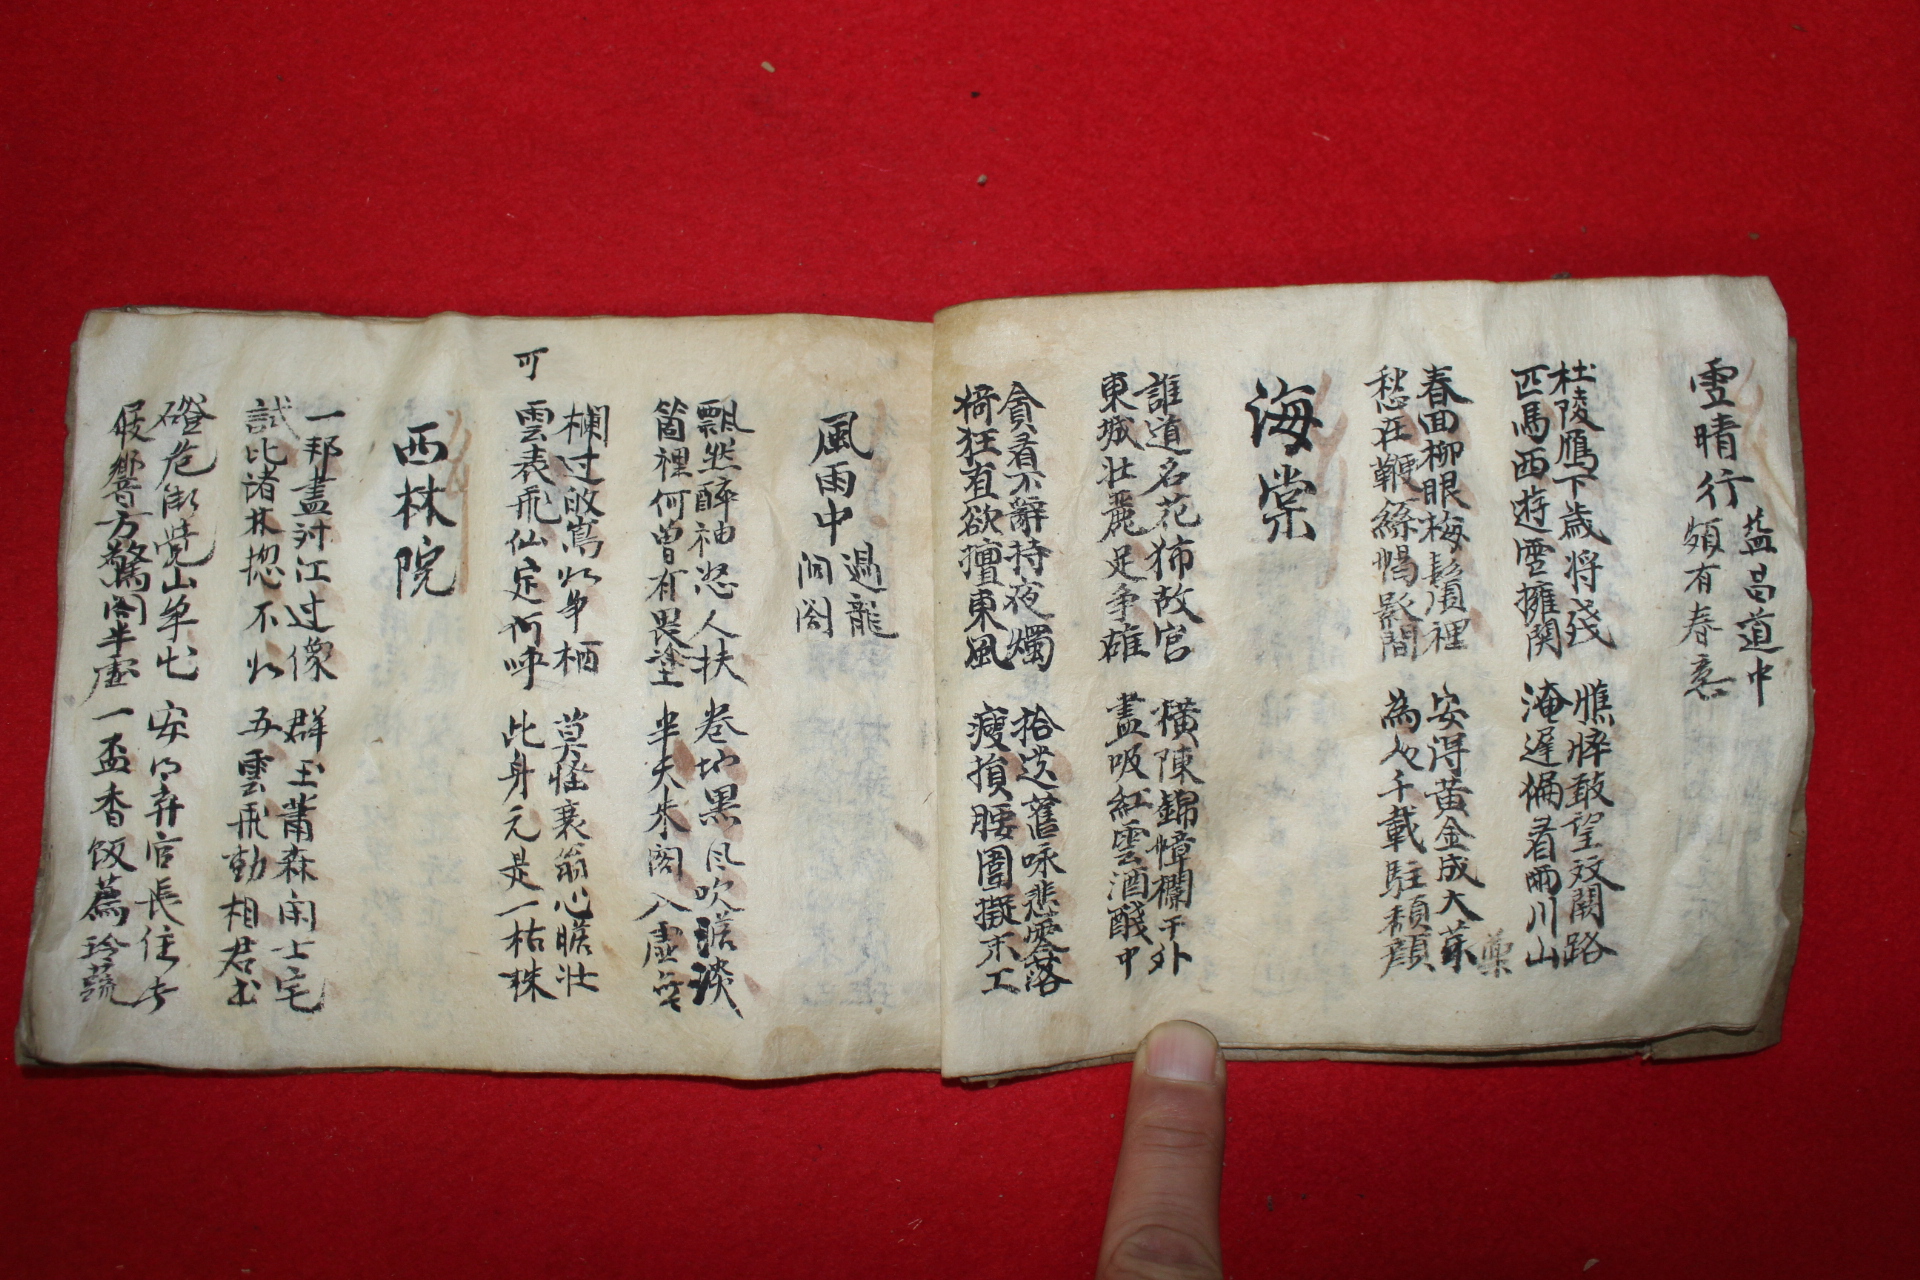 雪晴行
益昌道中
頗有春意
杜陵鴈下歲將殘
匹馬西遊雪擁關
憔悴敢望双闕路
淹遲偏看兩川山
春回柳眼梅鬚裡
愁在鞭絲帽影間
安得黃金成大藥
為人千載駐頹顏
海棠
誰道名花獨故宮
東城壯麗足爭雄
橫陳錦幛欄干外
盡吸紅雲酒醆中
貪看不辭持夜燭
猗狂直欲擅東風
拾遺舊咏悲零落
瘦損腰圍擬未工
風雨中
過龍
洞閣
飄然醉袖怒人扶
箇裡何曾有畏塗
卷地黑風吹澹淡
半天朱閣入虛無
欄过
棲
可
雲表飛仙定何呼
莫怪衰翁心膽壯
此身元是一枯株
西林院
一邦盡對江过像
試比諸林揔不如
群玉蕭森開士宅
五雲飛動相君書
磴危漸覺山爭出
屐響方驚閣半虛
安得弃官長住此
一盃香飯薦珍蔬